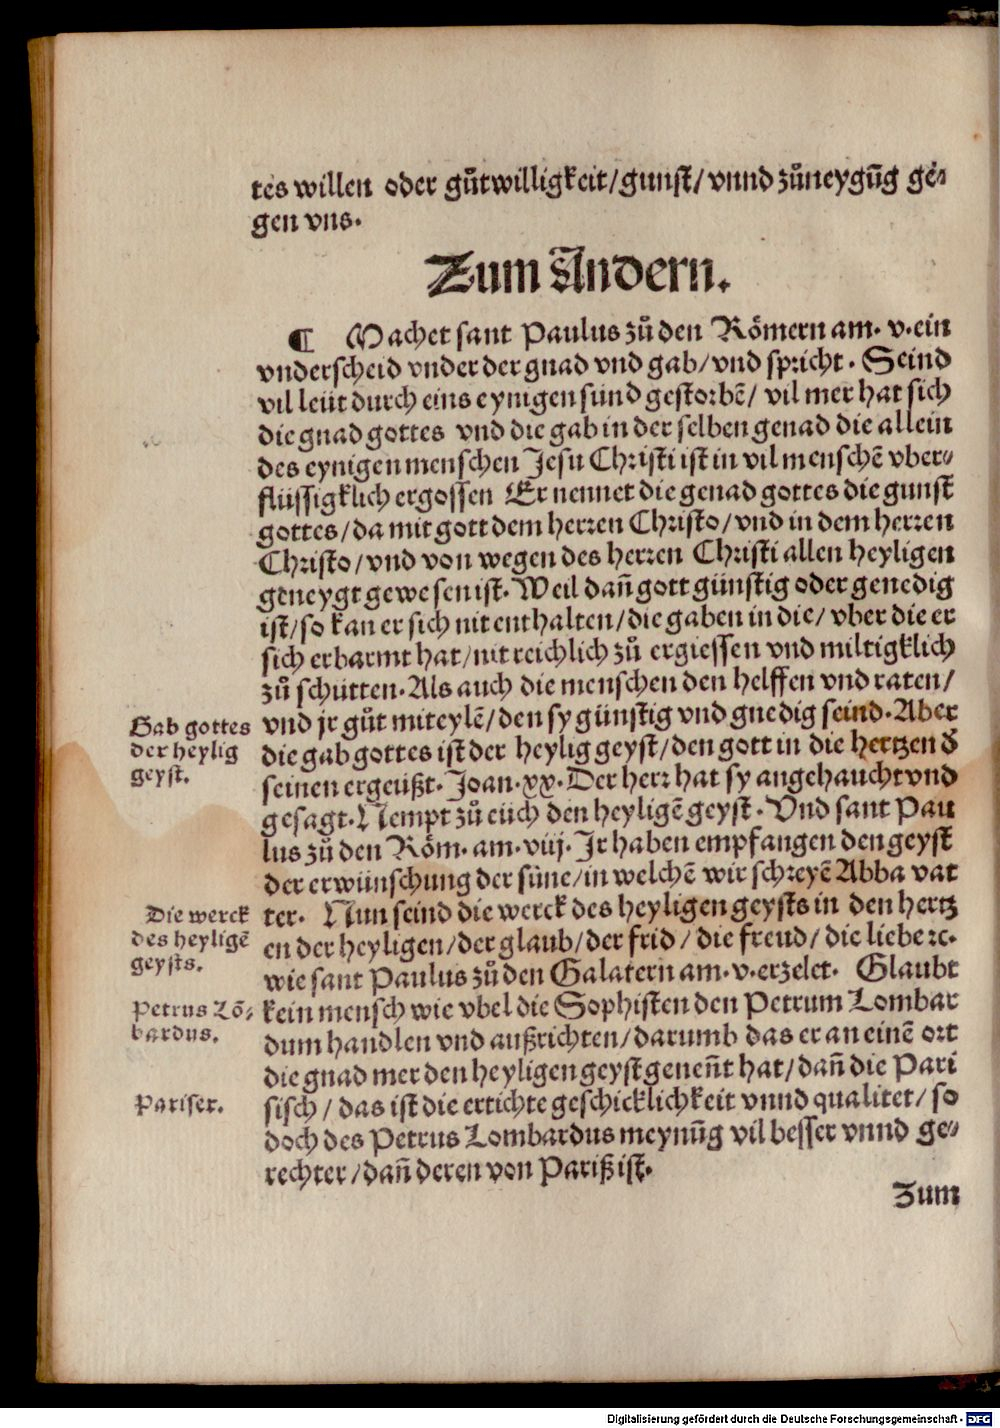 tes willen oder guͦtwilligkeit/ gunst/ vnnd zuͦneygūg ge⸗
gen vns.
Zum Andern.
¶ Machet sant Paulus zuͦ den Römern am. v. ein
vnderscheid vnder der gnad vnd gab/ vnd spricht. Seind
vil leüt durch eins eynigen sünd gestorbē/ vil mer hat sich
die gnad gottes vnd die gab in der selben genad die allein
des eynigen menschen Jesu Christi ist in vil menschē vber⸗
flüssigklich ergossen Er nennet die genad gottes die gunst
gottes/ da mit gott dem herren Christo/ vnd in dem herren
Christo/ vnd von wegen des herren Christi allen heyligen
geneygt gewesen ist. Weil dañ gott günstig oder genedig
ist/ so kan er sich nit enthalten/ die gaben in die/ vber die er
sich erbarmt hat/ nit reichlich zuͦ ergiessen vnd miltigklich
zuͦ schütten. Als auch die menschen den helffen vnd raten/
Gab gottes
der heylig
geyst.
vnd jr guͦt miteylē/ den sy günstig vnd gnedig seind. Aber
die gab gottes ist der heylig geyst/ den gott in die hertzen d̕
seinen ergeüßt. Joan. xx. Der herr hat sy angehaucht vnd
gesagt. Nempt zuͦ eüch den heyligē geyst. Vnd sant Pau
lus zuͦ den Röm. am. viij. Jr haben empfangen den geyst
der erwünschung der süne/ in welchē wir schreyē Abba vat
Die werck
des heyligē
geysts.
ter. Nun seind die werck des heyligen geysts in den hertz
en der heyligen/ der glaub/ der frid/ die freud/ die liebe ꝛc.
wie sant Paulus zuͦ den Galatern am. v. erzelet. Glaubt
Petrus Lō⸗
bardus.
kein mensch wie vbel die Sophisten den Petrum Lombar
dum handlen vnd außrichten/ darumb das er an einē ort
die gnad mer den heyligen geyst geneñt hat/ dañ die Pari
Pariser.
sisch/ das ist die ertichte geschicklichkeit vnnd qualitet/ so
doch des Petrus Lombardus meynūg vil besser vnnd ge⸗
rechter/ dañ deren von Pariß ist.
Zum
Digitalisierung gefördert durch die Deutsche Forschungsgemeinschaft - DFG